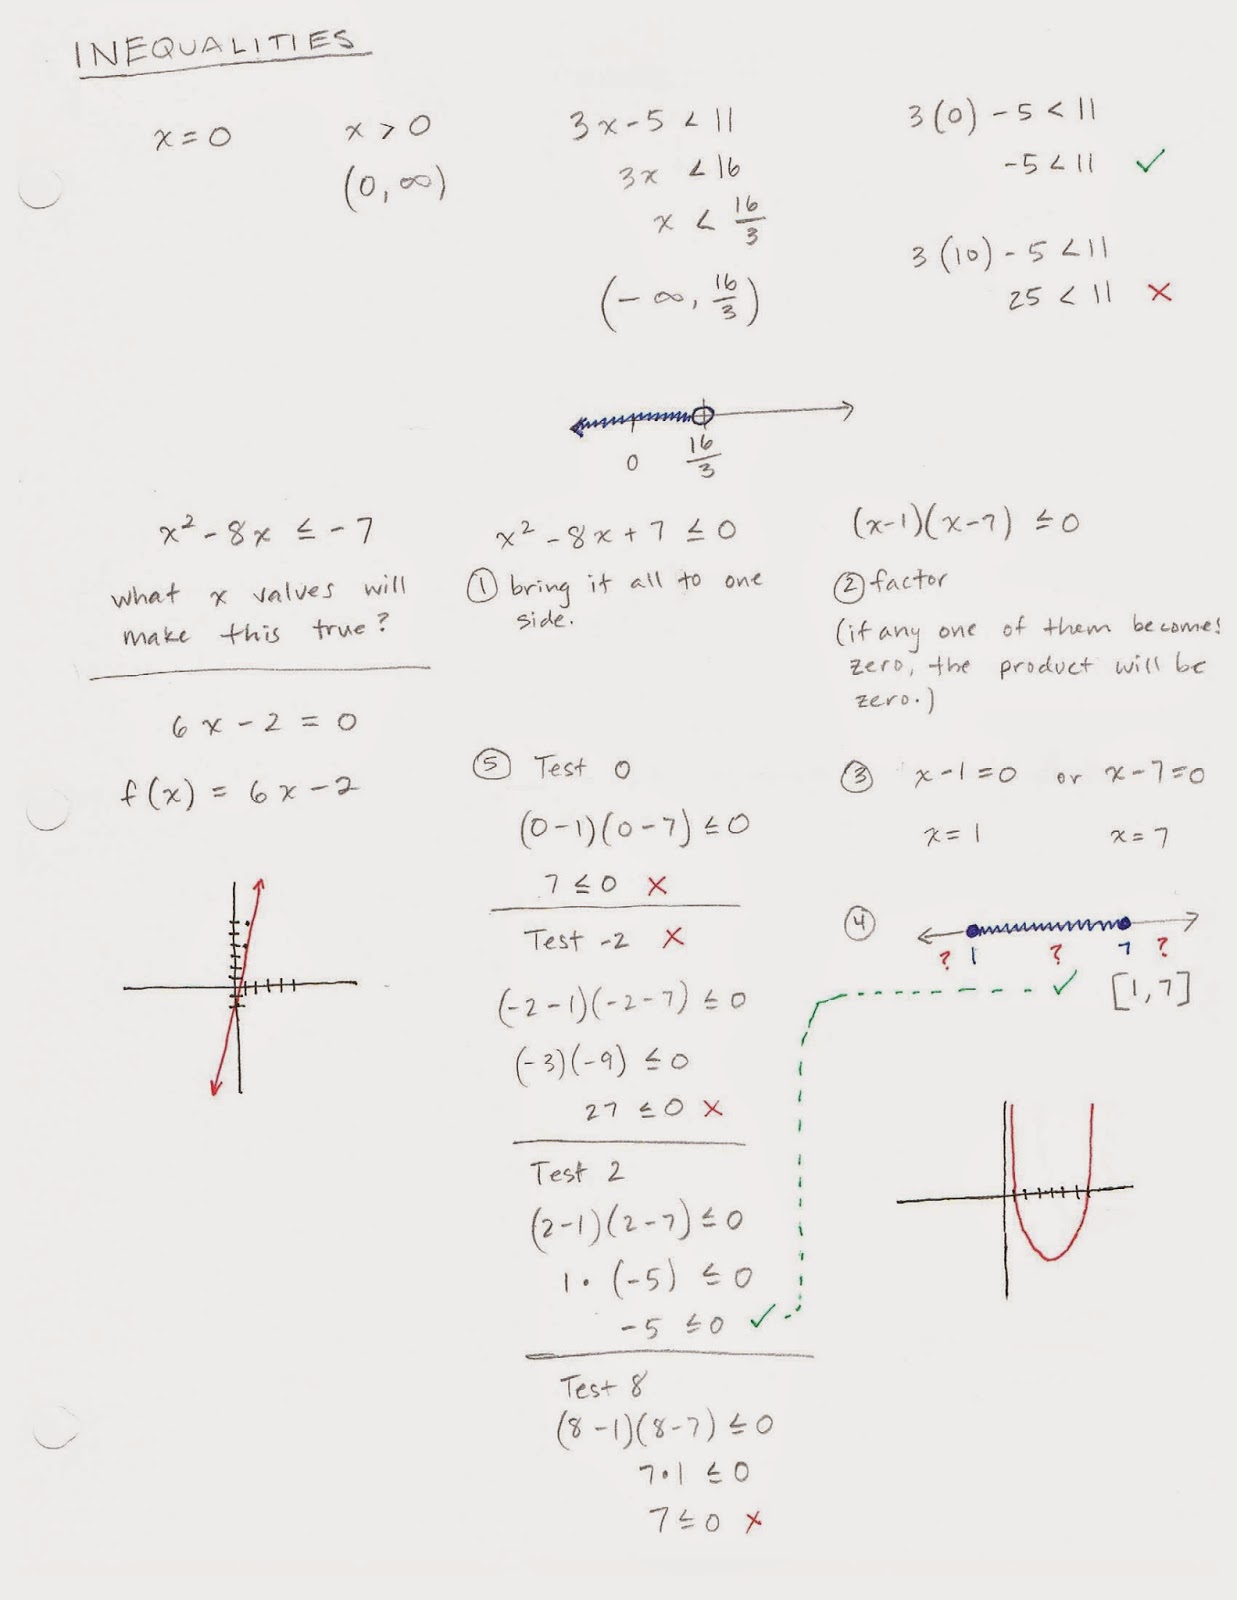 INEQUALITIES
x = 0
x > 0
(0, ∞)
3x - 5 < 11
3x < 16
x < 16/3
(-∞, 16/3)
3(0) - 5 < 11
-5 < 11 ✓
3(10) - 5 < 11
25 < 11 ×
0 16/3
x² - 8x ≤ -7
what x values will
make this true?
6x - 2 = 0
f(x) = 6x - 2
x² - 8x + 7 ≤ 0
① bring it all to one
side.
(x-1)(x-7) ≤ 0
② factor
(if any one of them becomes
zero, the product will be
zero.)
③ x-1=0 or x-7=0
x=1 x=7
④
? 1 ? 7 ?
✓ [1,7]
⑤ Test 0
(0-1)(0-7) ≤ 0
7 ≤ 0 ×
Test -2 ×
(-2-1)(-2-7) ≤ 0
(-3)(-9) ≤ 0
27 ≤ 0 ×
Test 2
(2-1)(2-7) ≤ 0
1 • (-5) ≤ 0
-5 ≤ 0 ✓
Test 8
(8-1)(8-7) ≤ 0
7•1 ≤ 0
7 ≤ 0 ×